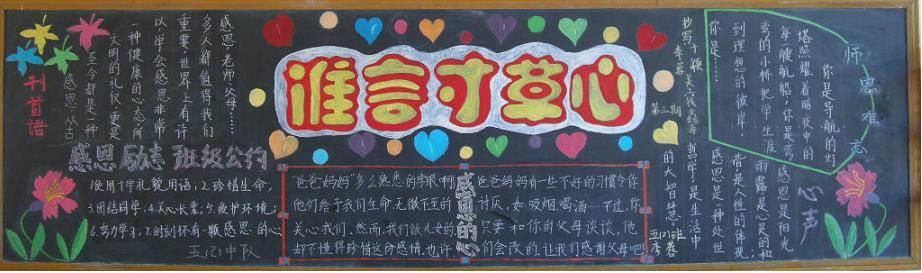 谁言寸草心
刊首语
感恩从古
至今都是一种
文明的礼仪，更是
一种健康的心态，所
以，学会感恩非常
重要，世界上有许
多人都值得我们
感恩：老师父母……
感恩励志 班级公约
使用十字礼貌用语，2.珍惜生命，
3.团结同学，4.关心长辈，5.爱护环境；
6.努力学习，7.时刻怀有一颗感恩的心
五(2)中队
"爸爸妈妈"多么熟悉的字眼啊
他们给予我们生命，无微不至的
关心我们。然而，我们做儿女的
却不懂得珍惜这份感情。也许，
感恩的心
爸爸妈妈有一些不好的习惯令你
讨厌，如吸烟、喝酒……不过，你
只要和你的父母谈谈，他
们会改的，让我们感谢父母吧
第三期
五(2)班
师恩难忘
你是导航的灯
塔照耀着暗夜中的
每一艘航船；你是弯
弯的小桥把学生渡
到理想的彼岸
你是……
心声
感恩是阳光
雨露是心灵的和
谐是人性的体现
感恩是一种处世
哲学是生活中
的大智慧